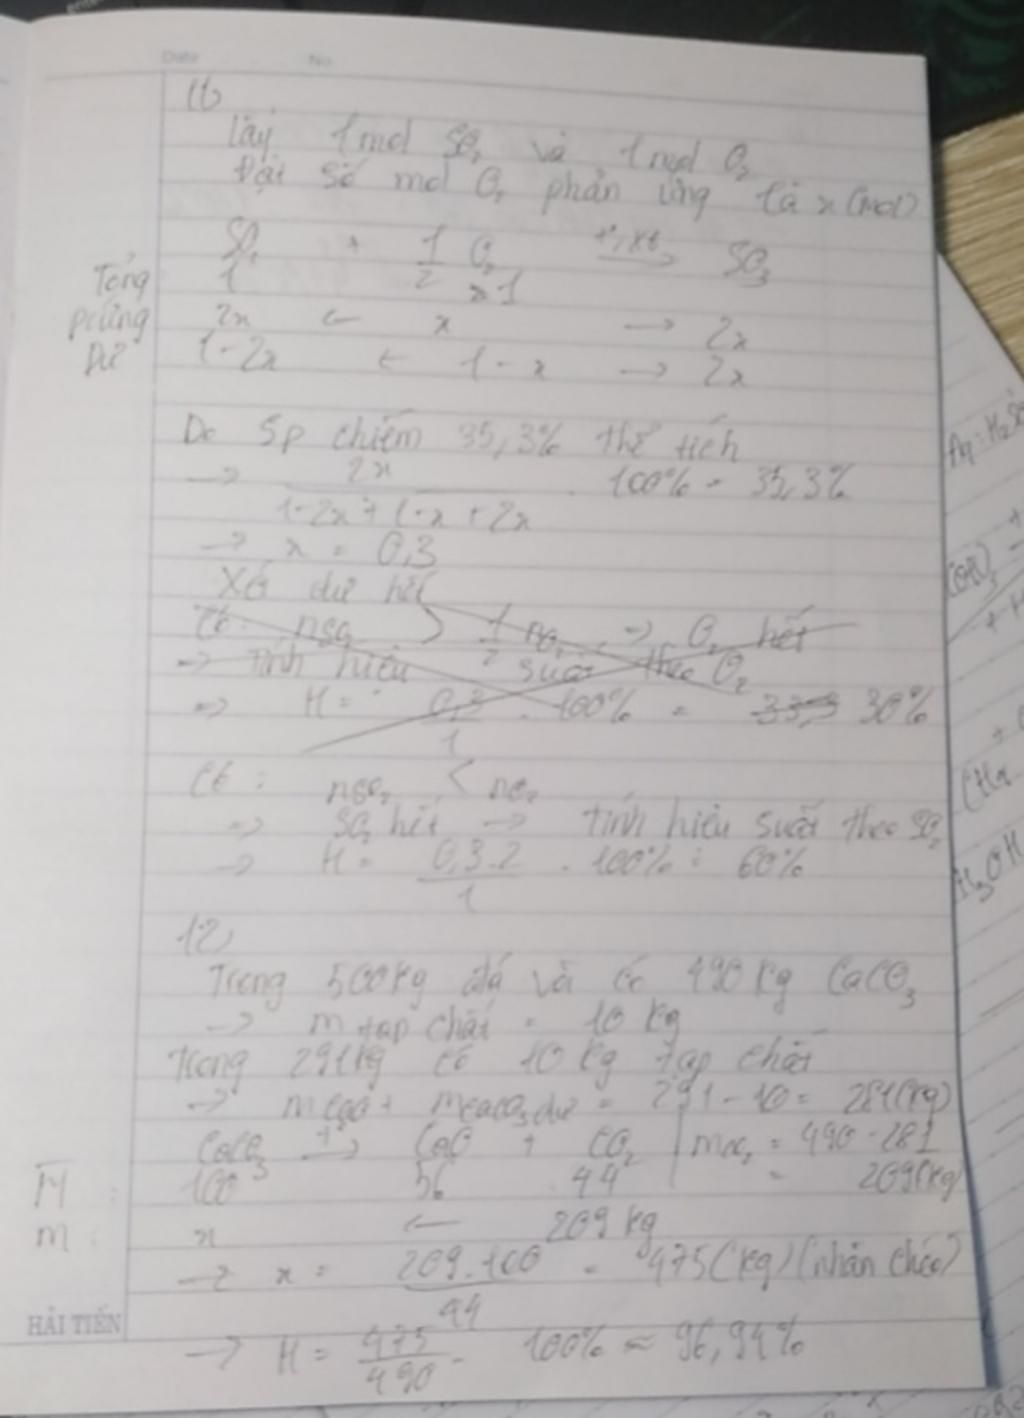 Date No
11)
Lấy 1 mol SO₂ và 1 mol O₂
Đặt số mol O₂ phản ứng là x (mol)
SO₂ + 1/2 O₂ t°, xt → SO₃
Tổng 1 1
pứng 2x ← x → 2x
Dư 1-2x ← 1-x → 2x
Do sp chiếm 35,3% thể tích
→ 2x / (1-2x+1-x+2x) . 100% = 35,3%
→ x = 0,3
Xét dư hết
Có: nSO₂ > 1/2 nO₂ → O₂ hết
→ tính hiệu suất theo O₂
=> H = 0,3/1 . 100% = 33,3 30%
Có: nSO₂ < nO₂
=> SO₂ hết → tính hiệu suất theo SO₂
→ H = 0,3.2/1 . 100% = 60%
12)
Trong 500kg đá vôi có 490 kg CaCO₃
→ m tạp chất = 10 kg
Trong 291kg có 10 kg tạp chất
→ mCaO + mCaCO₃ dư = 291 - 10 = 281(kg)
CaCO₃ t° → CaO + CO₂ | mCO₂ = 490 - 281
M : 100 56 44 = 209(kg)
m : x ← 209 kg
→ x = 209.100/44 = 475 (kg) (nhân chéo)
HẢI TIẾN
→ H = 475/490 . 100% ≈ 96,94%
Aq: H₂S
CH₃OH